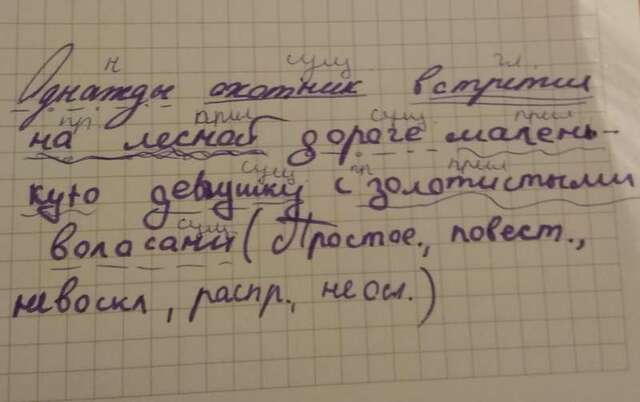 н сущ гл.
Однажды охотник встретил
пр. прил сущ прил
на лесной дороге малень-
сущ пр прил
кую девушку с золотистыми
сущ
волосами (Простое., повест.,
невоскл, распр., не осл.)